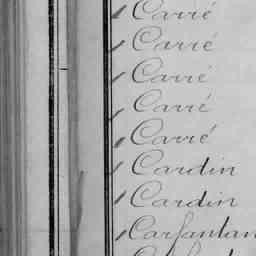 Carré
Carré
Carré
Carré
Carré
Cardin
Cardin